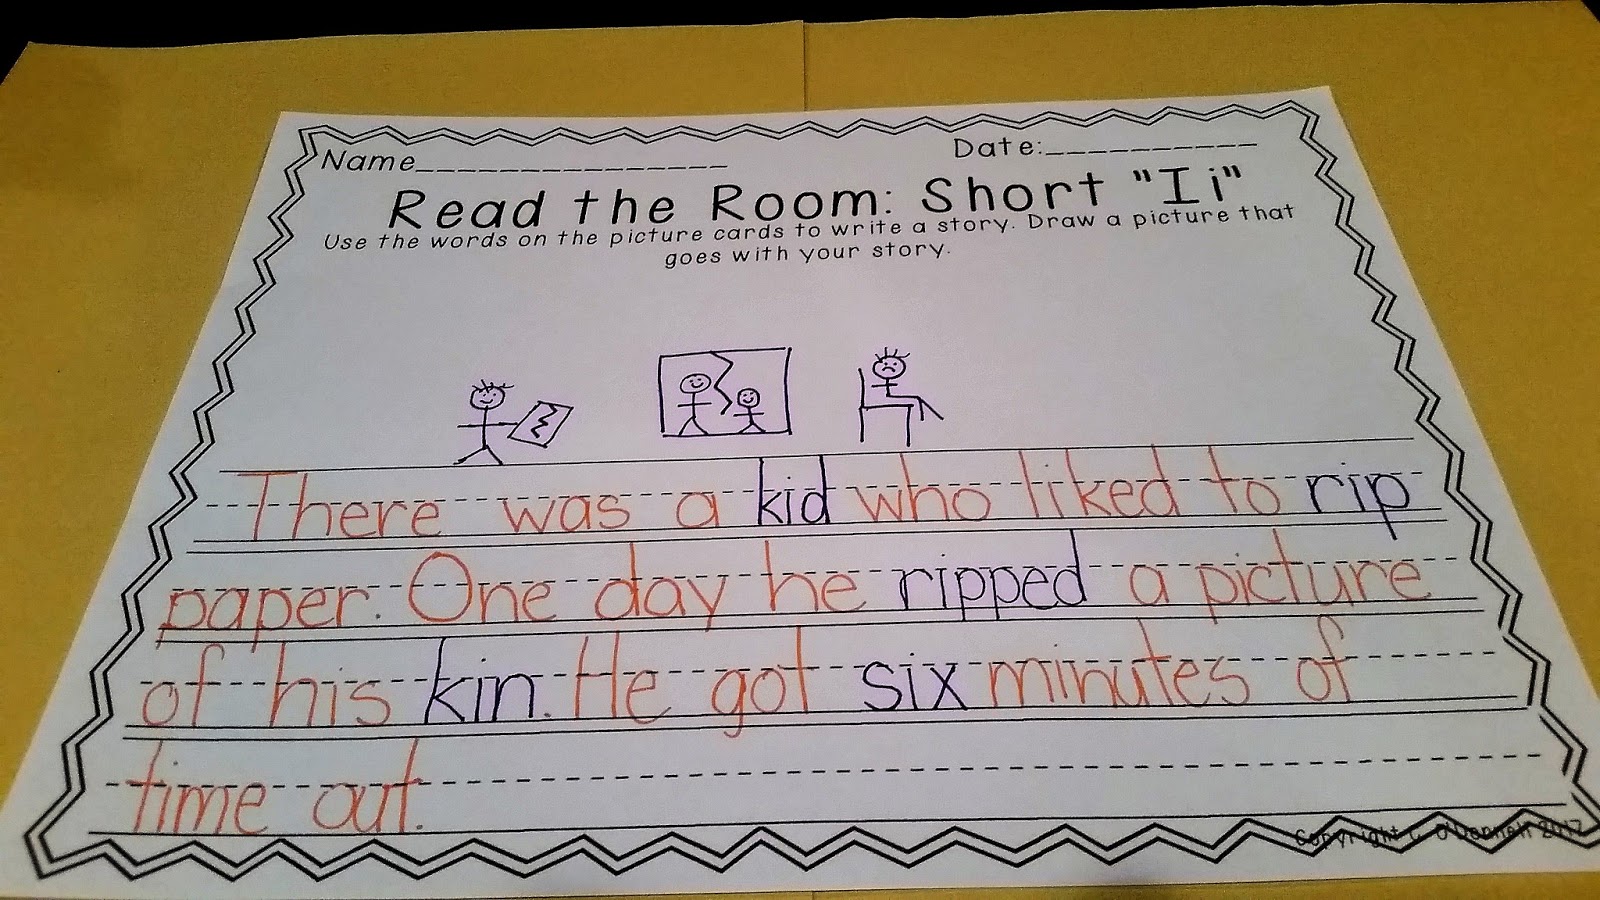 Name_______________ Date:__________
Read the Room: Short "Ii"
Use the words on the picture cards to write a story. Draw a picture that
goes with your story.
There was a kid who liked to rip
paper. One day he ripped a picture
of his kin. He got six minutes of
time out.
Copyright C O'Donnell 2017